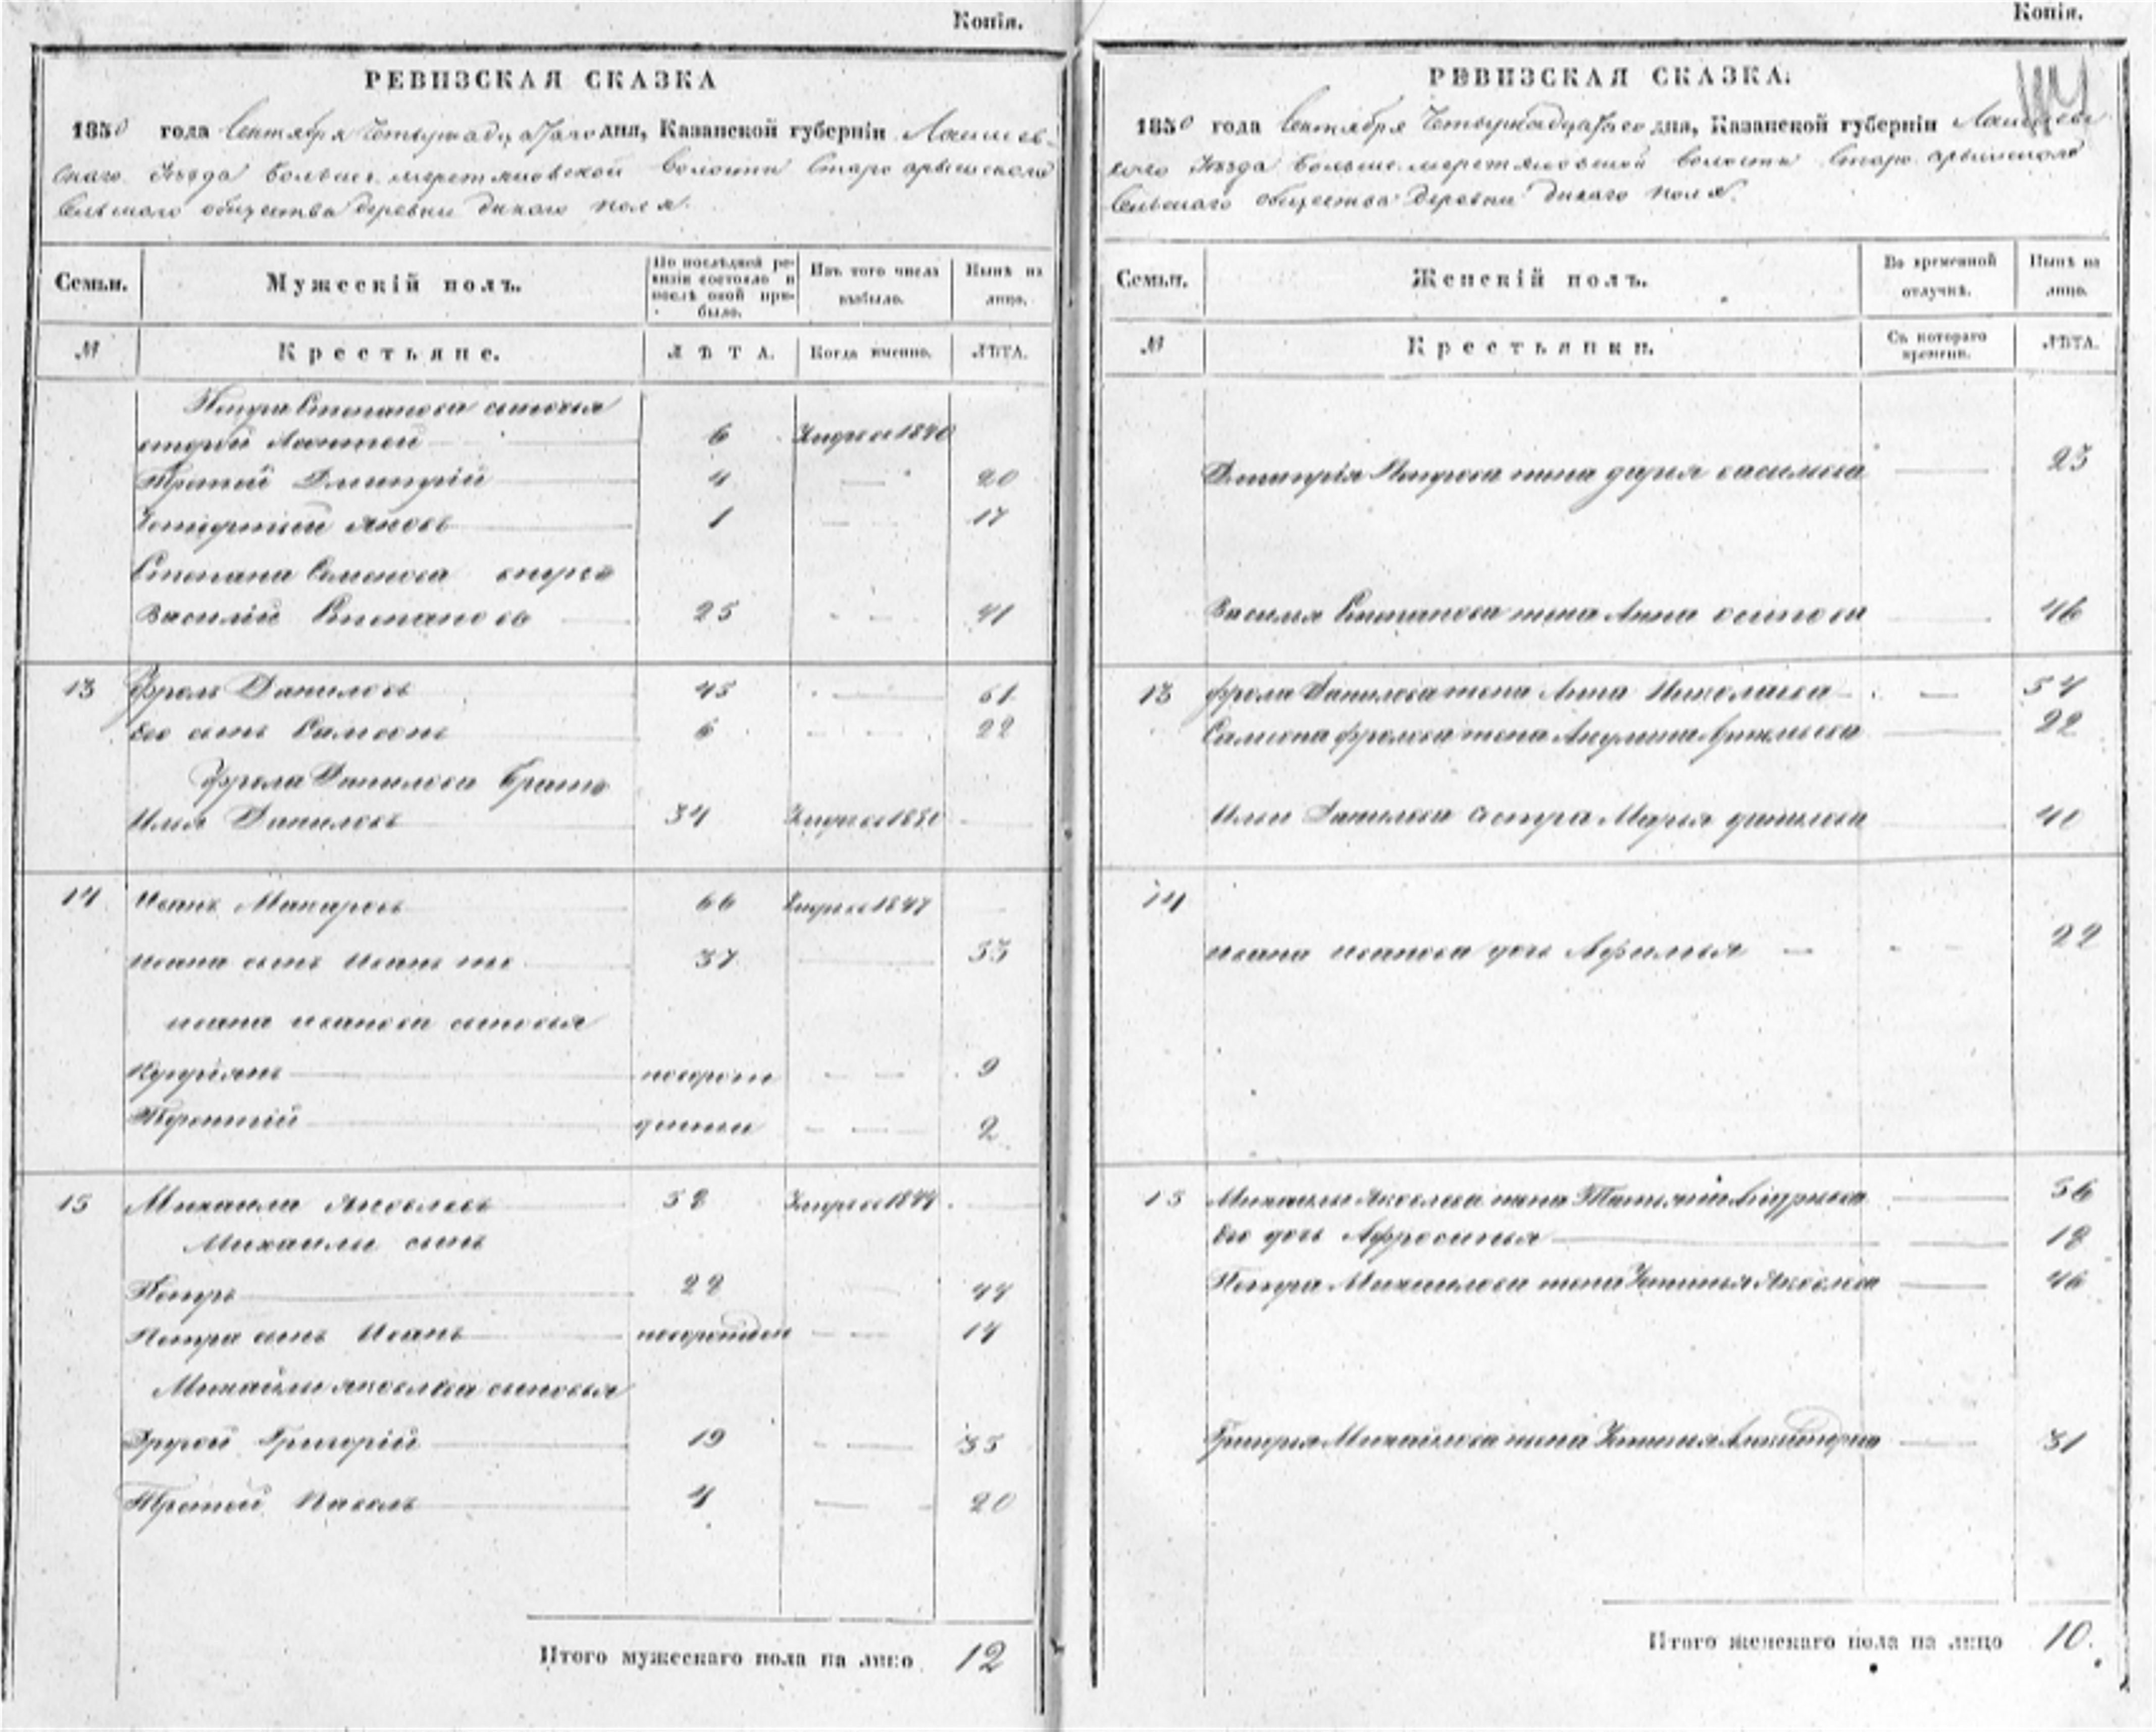 Копія.
РЕВИЗСКАЯ СКАЗКА
1850 года Сентября Четырнадцатого дня, Казанской губерніи Лаишев-
скаго Уѣзда Больше меретяковской волости Старо арышскаго
Сельскаго общества деревни дикаго поля.
Семьи. Мужескій полъ. По послѣдней ревизіи состояло и послѣ оной прибыло. Изъ того числа выбыло. Нынѣ на лицо.
№ Крестьяне. ЛѢТА. Когда именно. ЛѢТА.
Петра Степанова сыновья
второй 6 Умре в 1840
Третей Дмитрій 4 20
Четвертый Яковъ 1 17
Степана Семенова внукъ
Василий Степановъ 25 41
13 Фролъ Даниловъ 45 61
Его сынъ Самсонъ 6 22
Фрола Данилова братъ
Илья Даниловъ 34 Умре в 1850
14 Иванъ Макаровъ 66 Умре в 1847
Ивана сынъ Иванъ же 37 53
Ивана Иванова сыновья
новорож 9
Терентий денны 2
15 Михаила Яковлевъ 58 Умре в 1844
Михаилы сынъ
Петръ 28 44
Петра сынъ Иванъ новорожден 14
Михайлы Яковлева сыновья
Другой Григорій 19 35
Третей Павелъ 4 20
Итого мужескаго пола на лицо 12
Копія.
РЕВИЗСКАЯ СКАЗКА.
1850 года Сентября Четырнадцатого дня, Казанской губерніи Лаишев
скаго Уѣзда Больше меретяковской волости Старо арышскаго
Сельскаго общества деревни дикаго поля.
Семьи. Женскій полъ. Во временной отлучкѣ. Нынѣ на лицо.
№ Крестьянки. Съ котораго времени. ЛѢТА.
Дмитрія Петрова жена дарья васильева 23
Василья Степанова жена Анна осипова 46
13 Фрола Данилова жена Анна Николаева 54
Самсона фролова жена Акулина 22
Ильи Данилова сестра Марья данилова 40
14
Ивана иванова дочь Афимья 22
15 Михаилы Яковлева жена 56
Его дочь Афросинья 18
Петра Михайлова жена Устинья Яковлева 46
Григорья Михайлова жена Устинья 31
Итого женскаго пола на лицо 10.